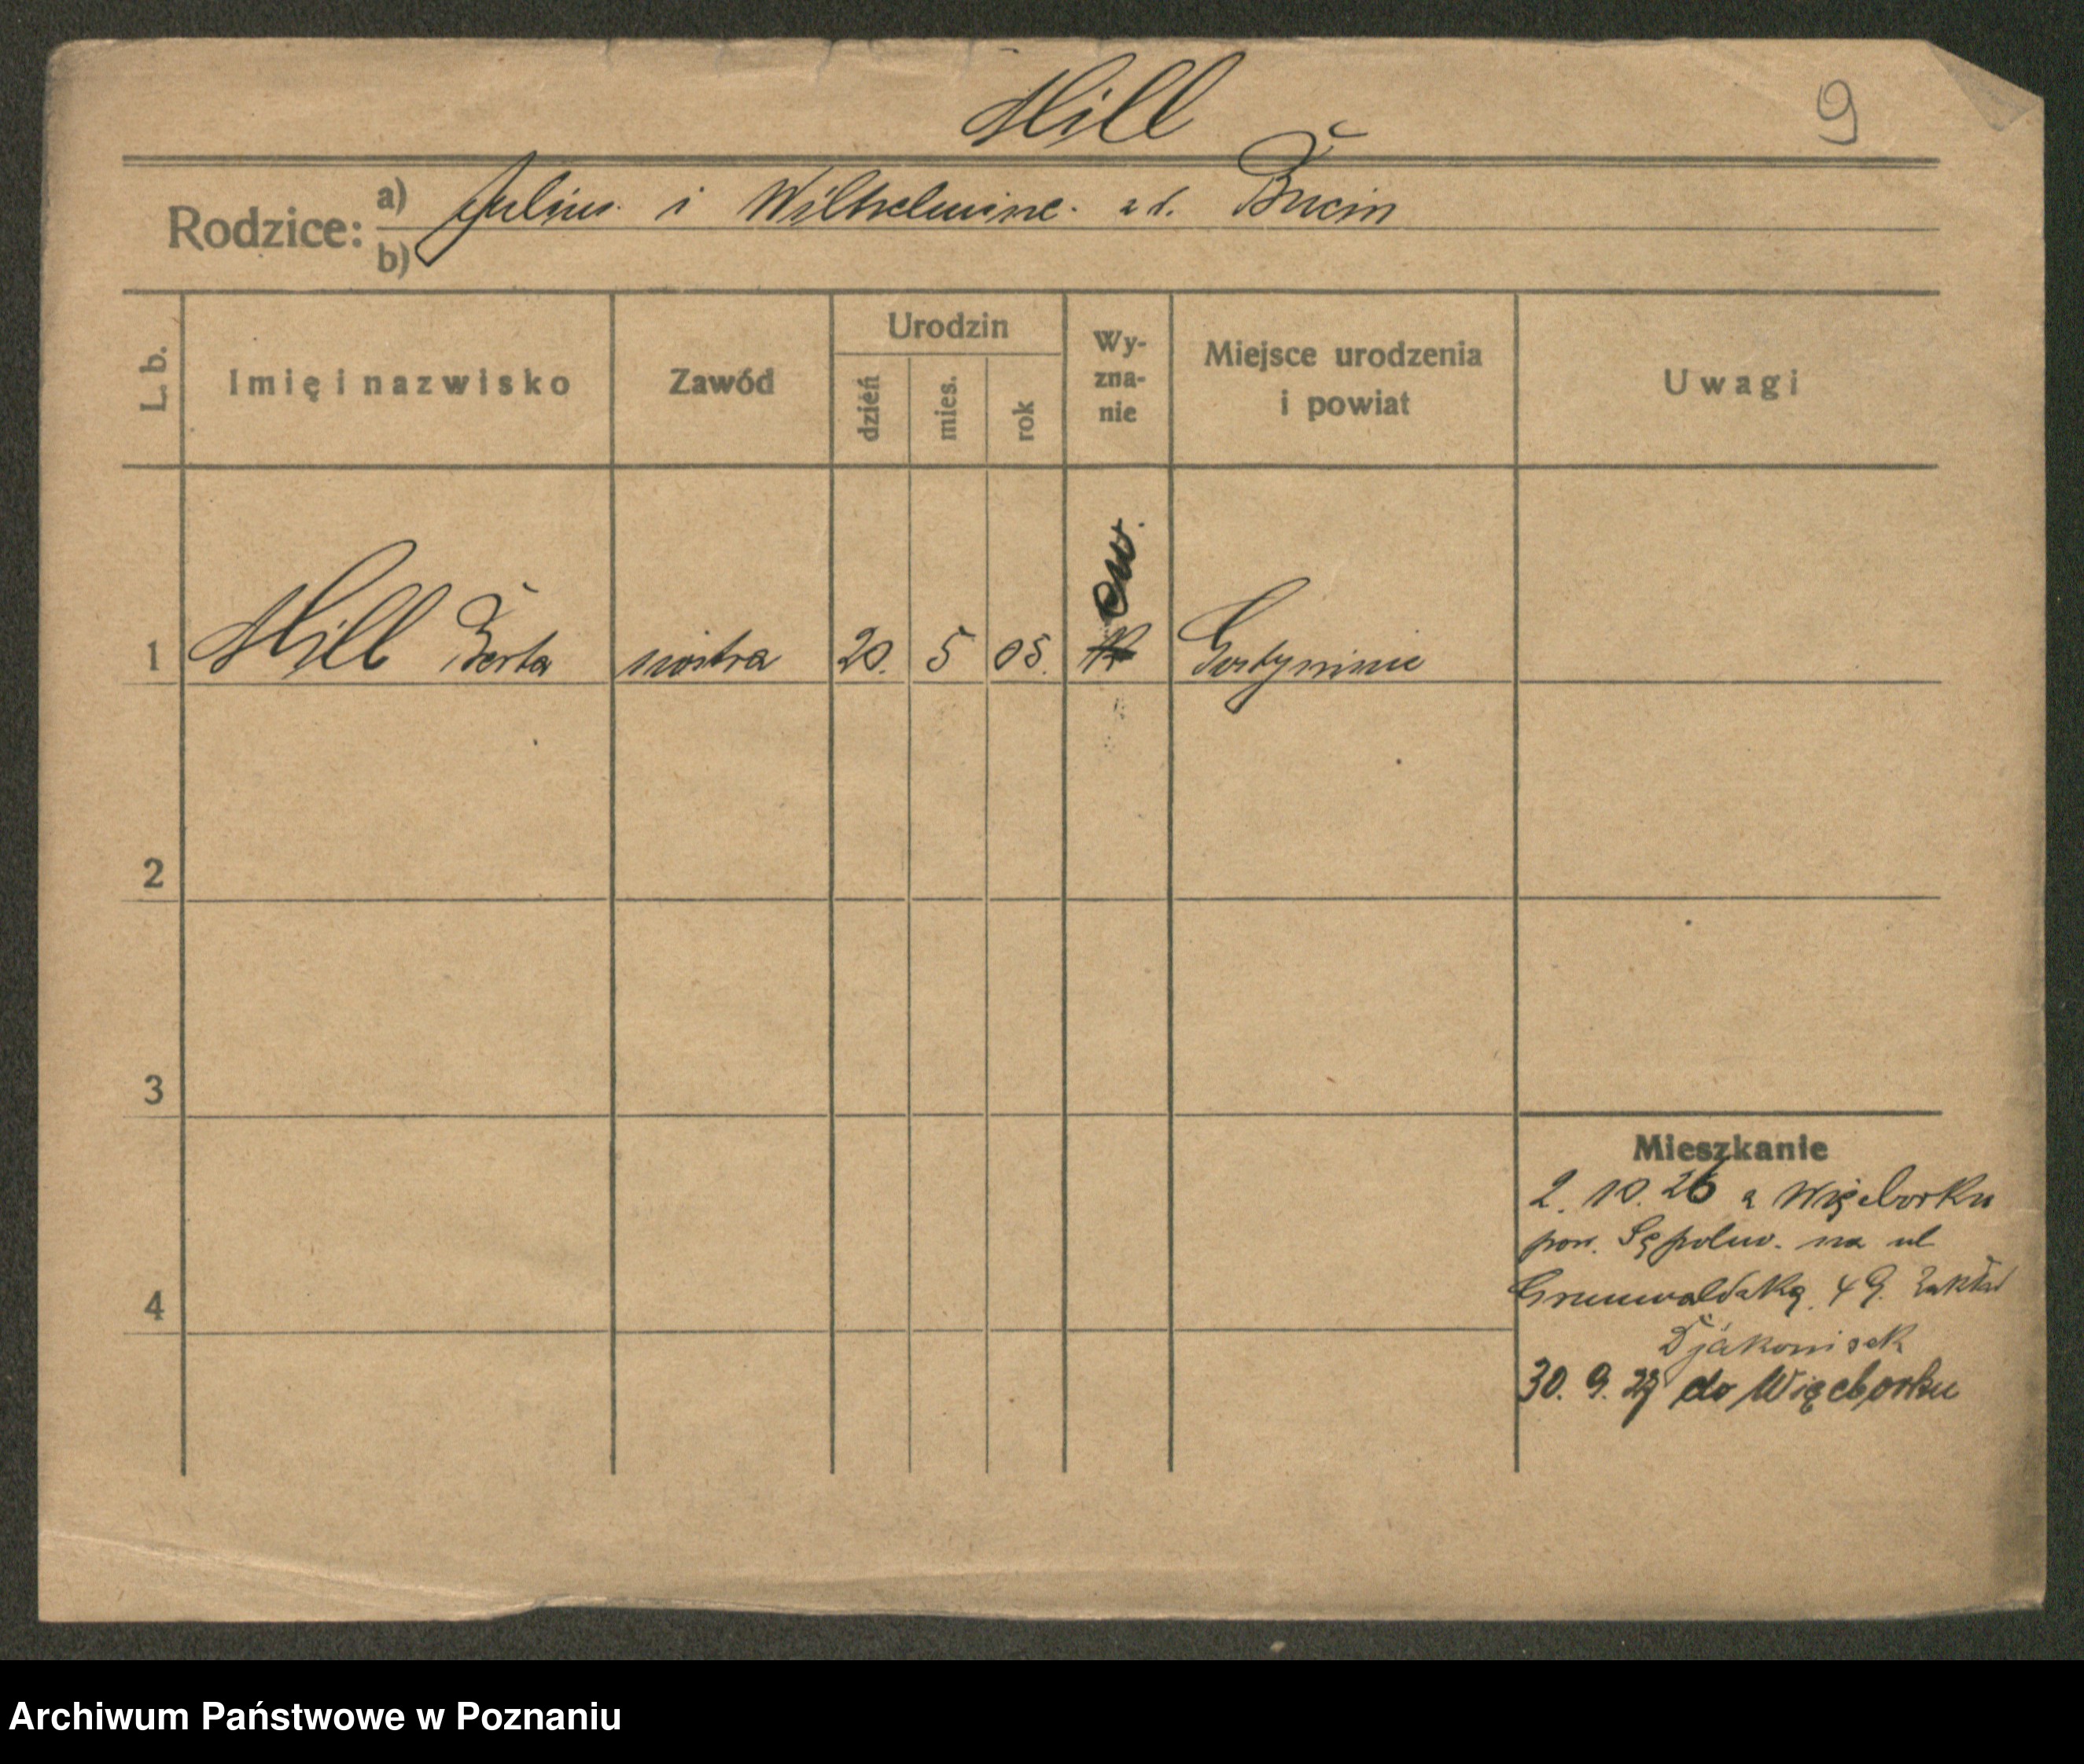 Hill
9
Rodzice:
a) Julius i Wilhelmine zd. Bucin
b)
L. b.
Imię i nazwisko
Zawód
Urodzin
dzień
mies.
rok
Wy-
zna-
nie
Miejsce urodzenia
i powiat
Uwagi
ew.
1 Hill Berta siostra 20. 5 05.
2
3
4
Mieszkanie
2. 10. 26 z Więcborku
pow. Sępolno. na ul
Grunwaldzką 49. Zakład
Djakonisek
30. 9. 27 do Więcborku
Archiwum Państwowe w Poznaniu